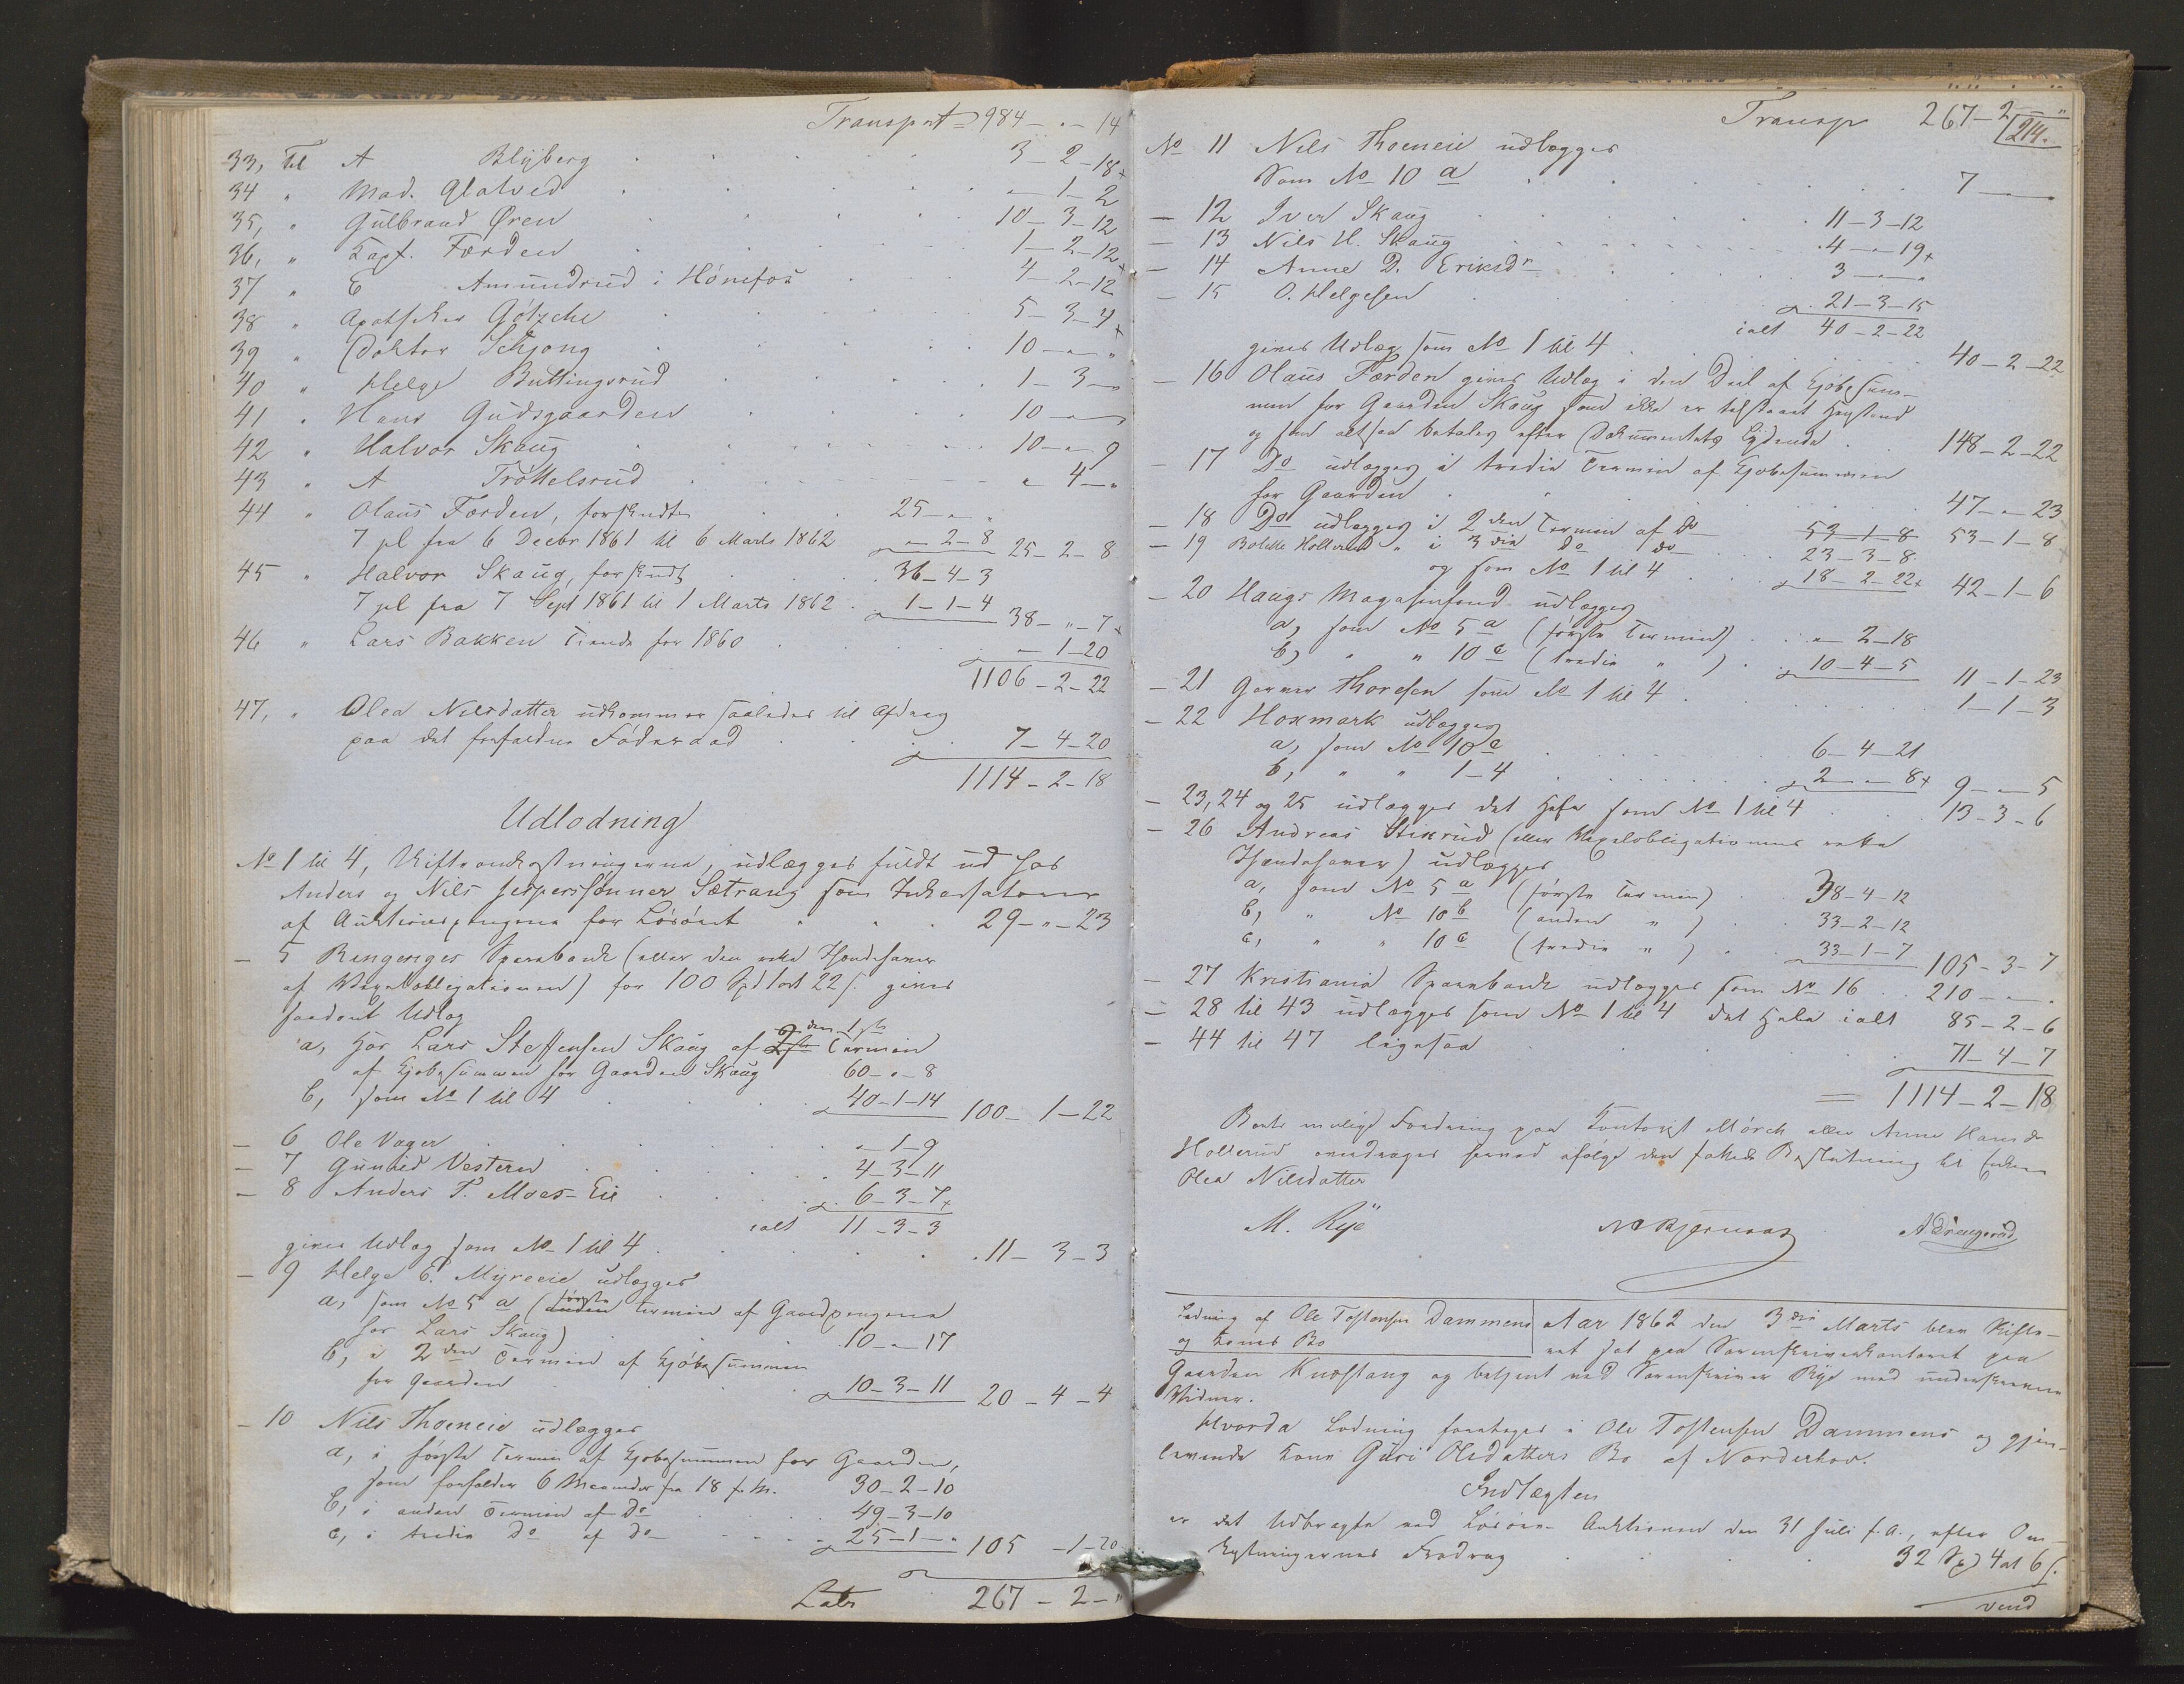 Transport 984 - " - 14
33, Til A Blyberg 3 - 2 - 18+
34 " Mad. Glatved " - 1 - 2
35, " Gulbrand Øren 10 - 3 - 12
36, " Capt. Færden 1 - 2 - 12+
37 " E Amundrud i Hønefos 4 - 2 - 12
38 " Apotheker Götzche 5 - 3 - 4+
39 " Doktor Schjong 10 - " - "
40 " Helge Buttingsrud 1 - 3 - "
41 " Hans Gudsgaarden 10 - "
42 " Halvor Skaug 10 - " - 9
43 " A Trøttelsrud " 4 - "
44 " Olaus Færden, forskudt 25 - " - "
7 pl fra 6 Decbr 1861 til 6 Marts 1862 " - 2 - 8 25 - 2 - 8
45 " Halvor Skaug, forskudt 36 - 4 - 3
7 pl fra 7 Sept 1861 til 1 Marts 1862 1 - 1 - 4 38 - " - 7+
46 " Lars Bakken Tiende for 1860 " - 1 - 20
1106 - 2 - 22
47, " Olea Nilsdatter udkommer saaledes til Afdrag
paa det forfaldne Føderaad 7 - 4 - 20
1114 - 2 - 18
Udlodning
No 1 til 4, Skifteomkostningerne, udlægges fuldt ud hos
Anders og Nils Jespersønner Sætrang som Inkassatorer
af Auktionspengene for Løsøret 29 - " - 23
- 5 Ringeriges Sparebank (eller den rette Ihændehaver
af Vexelobligationen) for 100 Spd 1 ort 22 s. gives
saadant Udlæg
a, hos Lars Steffensen Skaug af 1ste Termin
af Kjøbesummen for Gaarden Skaug 60 - " - 8
b, som No 1 til 4 40 - 1 - 14 100 - 1 - 22
- 6 Ole Vager " - 1 - 9
- 7 Gunild Vestern 4 - 3 - 11
- 8 Anders P. Moes-Eie 6 - 3 - 7+
ialt 11 - 3 - 3
gives Udlæg som No 1 til 4 11 - 3 - 3
- 9 Helge E. Myreeie udlægges
a, som No 5 a (anden første Termin af Gaardpengene
hos Lars Skaug) 10 - " - 17
b, i 2den Termin af Kjøbesummen
for Gaarden 10 - 3 - 11 20 - 4 - 4
- 10 Nils Thoeneie udlægges
a, i første Termin af Kjøbesummen for Gaarden,
som forfalder 6 Maaneder fra 18 f. M. 30 - 2 - 10
b, i anden Termin af Do 49 - 3 - 10
c, i tredie Do af Do 25 - 1 - " 105 - 1 - 20
Lats 267 - 2 - "
Transp 267 - 2 - "
214.
No 11 Nils Thoeneie udlægges
Som No 10 a 7 -
- 12 Iver Skaug 11 - 3 - 12
- 13 Nils H. Skaug 4 - " - 19+
- 14 Anne D. Eriksdr 3 - " - "
- 15 O. Helgesen 21 - 3 - 15
ialt 40 - 2 - 22
gives Udlæg som No 1 til 4 40 - 2 - 22
- 16 Olaus Færden gives Udlæg i den Deel af Kjøbesum-
men for Gaarden Skaug som ikke er
og som altsaa betales efter Dokumentets Lydende 148 - 2 - 22
- 17 Do udlægges i tredie Termin af Kjøbesummen
for Gaarden 47 - " - 23
- 18 Do udlægges i 2den Termin af Do 53 - 1 - 8 53 - 1 - 8
- 19 Bolette Hollerud " i 3die Do do 23 - 3 - 8
og som No 1 til 4 18 - 2 - 22+ 42 - 1 - 6
- 20 Haugs Magasinfond udlægges
a, som No 5 a (første Termin) " - 2 - 18
b, " " 10 c (tredie " ) 10 - 4 - 5 11 - 1 - 23
- 21 Garver Thoresen som No 1 til 4 1 - 1 - 3
- 22 Hoxmark udlægges
a, som No 10 c 6 - 4 - 21
b, " " 1 - 4 2 - " - 8+ 9 - " - 5
- 23, 24 og 25 udlægges det Hele som No 1 til 4 13 - 3 - 6
- 26 Andreas Stixrud (eller Vexelobligationens rette
Ihændehaver) udlægges
a, som No 5 a (første Termin) 38 - 4 - 12
b, " No 10 b (anden " ) 33 - 2 - 12
c, " " 10 c (tredie " ) 33 - 1 - 7 105 - 3 - 7
- 27 Kristiania Sparebank udlægges som No 16 210 - " - "
- 28 til 43 udlægges som No 1 til 4 det Hele ialt 85 - 2 - 6
- 44 til 47 ligesaa 71 - 4 - 7
= 1114 - 2 - 18
Boets mulige Fordring paa Kontorist Mørch eller Anne Hansdr
Hollerud overdrages herved ifølge den fattede Beslutning til Enken
Olea Nilsdatter
M. Rye A. Drengsrud
Lodning af Ole Tostensen Dammens
og Kones Bo
Aar 1862 den 3die Marts blev Skifte-
ret sat paa Sorenskriverkontoret paa
Gaarden Knestang og betjent ved Sorenskriver Rye med underskrevne
Vidner.
Hvorda Lodning foretages i Ole Tostensen Dammens og gjen-
levende Kone Guri Olsdatters Bo af Norderhov.
Indtægten
er det Udbragte ved Løsøre-Auktionen den 31 Juli f. A., efter Om-
kostningernes Fradrag 32 Spd 4 ort 6 s.
vend